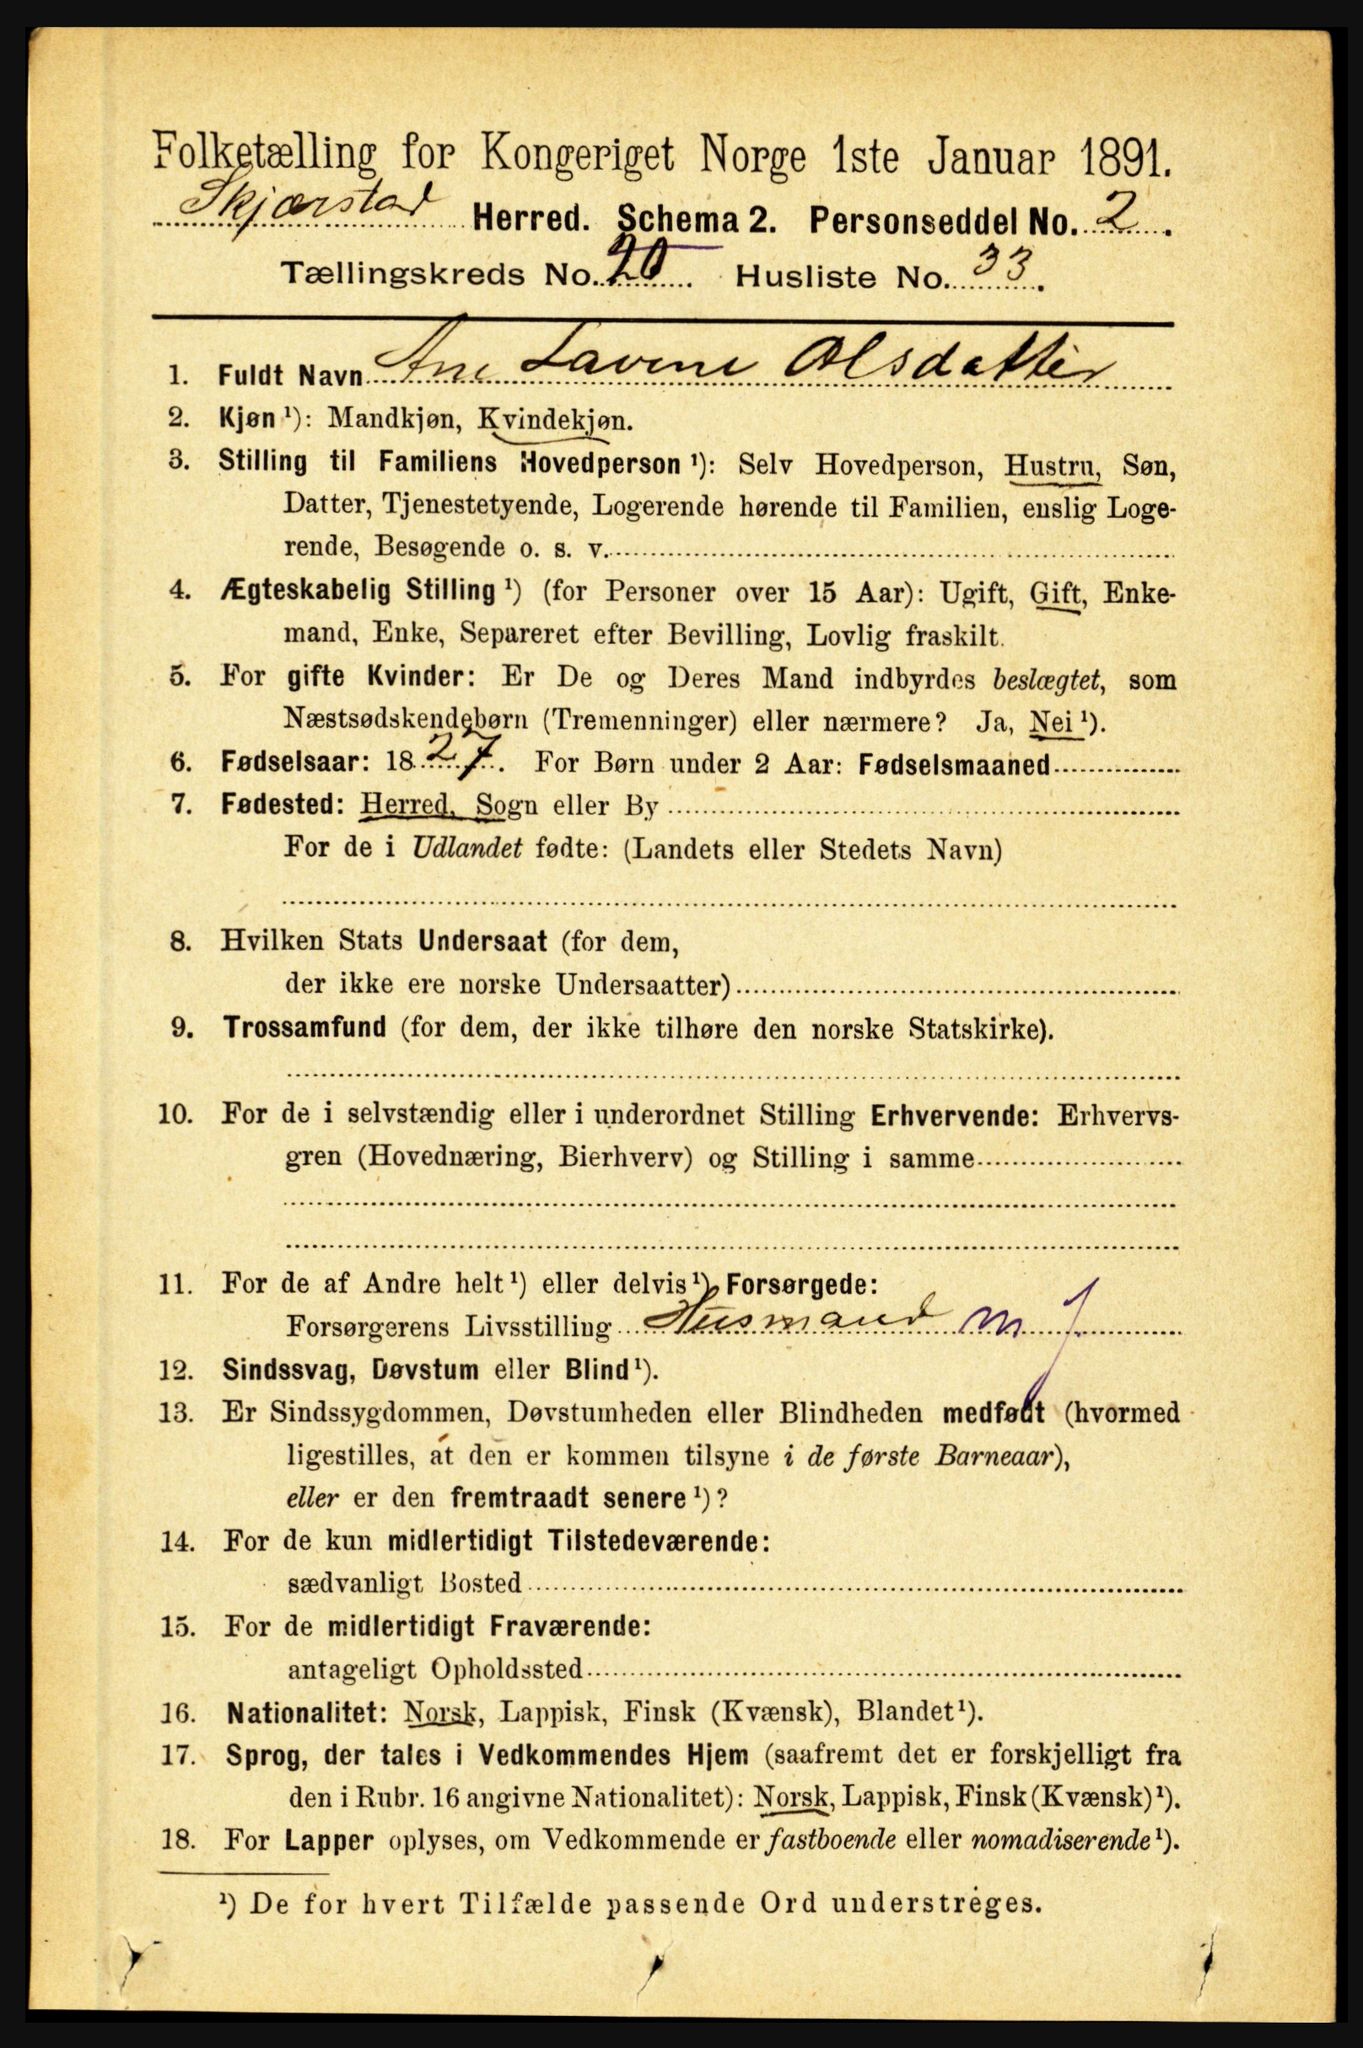 Folketælling for Kongeriget Norge 1ste Januar 1891.
Skjærstad Herred. Schema 2. Personseddel No. 2.
Tællingskreds No. Husliste No. 33.
1. Fuldt Navn Ane Lavine Olsdatter
2. Kjøn ¹): Mandkjøn, Kvindekjøn.
3. Stilling til Familiens Hovedperson ¹): Selv Hovedperson, Hustru, Søn,
Datter, Tjenestetyende, Logerende hørende til Familien, enslig Loge-
rende, Besøgende o. s. v.
4. Ægteskabelig Stilling ¹) (for Personer over 15 Aar): Ugift, Gift, Enke-
mand, Enke, Separeret efter Bevilling, Lovlig fraskilt.
5. For gifte Kvinder: Er De og Deres Mand indbyrdes beslægtet, som
Næstsødskendebørn (Tremenninger) eller nærmere? Ja, Nei ¹).
6. Fødselsaar: 1827. For Børn under 2 Aar: Fødselsmaaned
7. Fødested: Herred, Sogn eller By
For de i Udlandet fødte: (Landets eller Stedets Navn)
8. Hvilken Stats Undersaat (for dem,
der ikke ere norske Undersaatter)
9. Trossamfund (for dem, der ikke tilhøre den norske Statskirke).
10. For de i selvstændig eller i underordnet Stilling Erhvervende: Erhvervs-
gren (Hovednæring, Bierhverv) og Stilling i samme
11. For de af Andre helt ¹) eller delvis ¹) Forsørgede:
Forsørgerens Livsstilling Husmand m J
12. Sindssvag, Døvstum eller Blind ¹).
13. Er Sindssygdommen, Døvstumheden eller Blindheden medfødt (hvormed
ligestilles, at den er kommen tilsyne i de første Barneaar),
eller er den fremtraadt senere ¹)?
14. For de kun midlertidigt Tilstedeværende:
sædvanligt Bosted
15. For de midlertidigt Fraværende:
antageligt Opholdssted
16. Nationalitet: Norsk, Lappisk, Finsk (Kvænsk), Blandet ¹).
17. Sprog, der tales i Vedkommendes Hjem (saafremt det er forskjelligt fra
den i Rubr. 16 angivne Nationalitet): Norsk, Lappisk, Finsk (Kvænsk) ¹).
18. For Lapper oplyses, om Vedkommende er fastboende eller nomadiserende ¹).
¹) De for hvert Tilfælde passende Ord understreges.